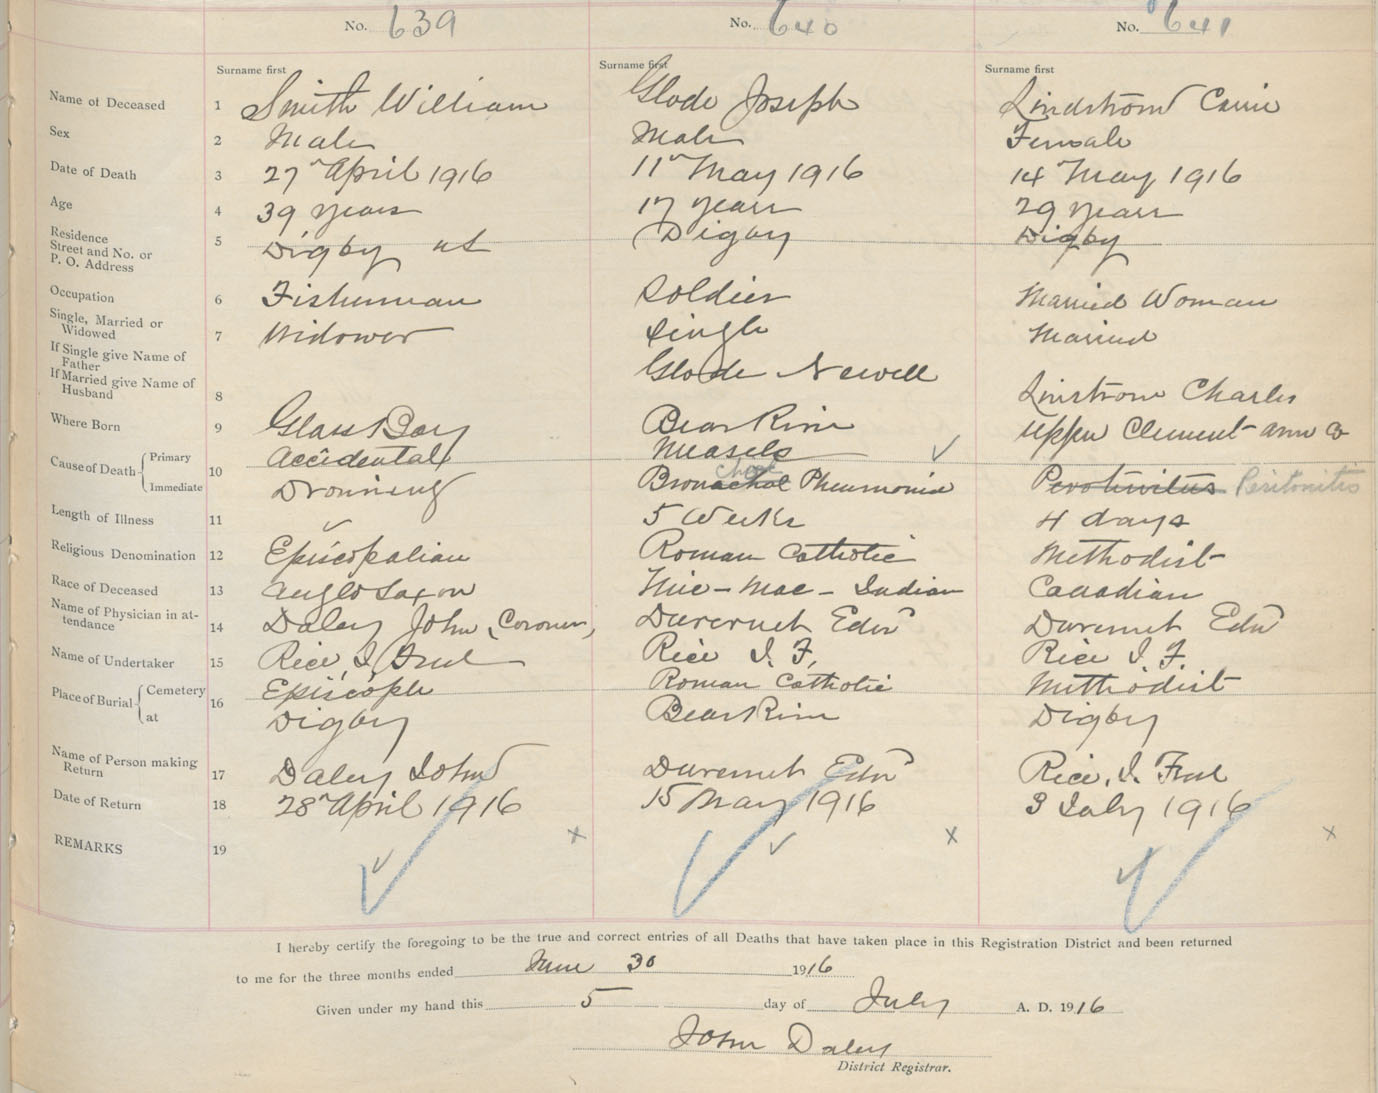 No. 639 No. 640 No. 641
Surname first Surname first Surname first
Name of Deceased 1 Smith William Glode Joseph Lindstrom Carrie
Sex 2 Male Male Female
Date of Death 3 27 April 1916 11 May 1916 14 May 1916
Age 4 39 years 17 years 29 years
Residence
Street and No. or 5 Digby Digby Digby
P. O. Address
Occupation 6 Fisherman Soldier Married Woman
Single, Married or
Widowed 7 Widower Single Married
If Single give Name of
Father Glode Newell
If Married give Name of
Husband 8 Linstrom Charles
Where Born 9 Glass Bay Bear River Upper Clement Ann Co
Cause of Death Primary 10 Accidental Measels
Immediate Drowning Pneumonia Peritonitis
Length of Illness 11 5 Weeks 4 days
Religious Denomination 12 Episcopalian Roman Catholic Methodist
Race of Deceased 13 Anglo Saxon Mic-Mac-Indian Canadian
Name of Physician in at-
tendance 14 Daley John (Coroner) Duvernet Edw Duvernet Edw
Name of Undertaker 15 Rice, I, Fred Rice I. F. Rice I. F.
Place of Burial Cemetery 16 Roman Catholic Methodist
at Digby Bear River Digby
Name of Person making
Return 17 Daley John Duvernet Edw Rice, I. Fred
Date of Return 18 28 April 1916 15 May 1916 3 July 1916
REMARKS 19
I hereby certify the foregoing to be the true and correct entries of all Deaths that have taken place in this Registration District and been returned
to me for the three months ended June 30 1916
Given under my hand this 5 day of July A. D. 1916
John Daley
District Registrar.